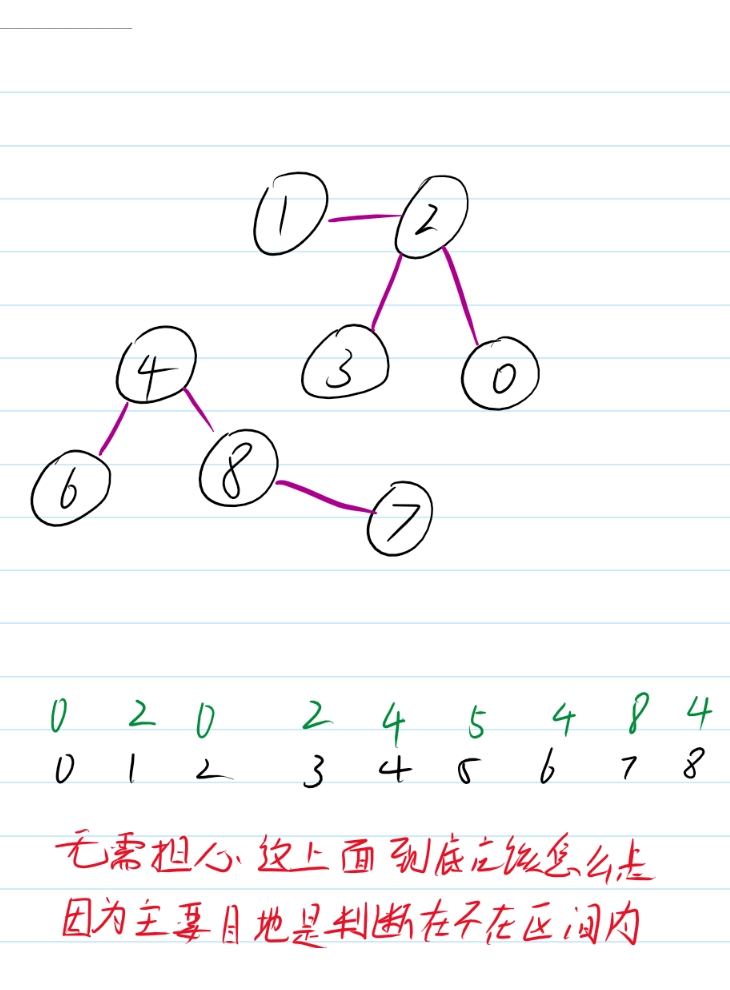 1 2
4 3 0
6 8 7
0 2 0 2 4 5 4 8 4
0 1 2 3 4 5 6 7 8
无需担心这上面到底应该怎么走
因为主要目地是判断在不在区间内